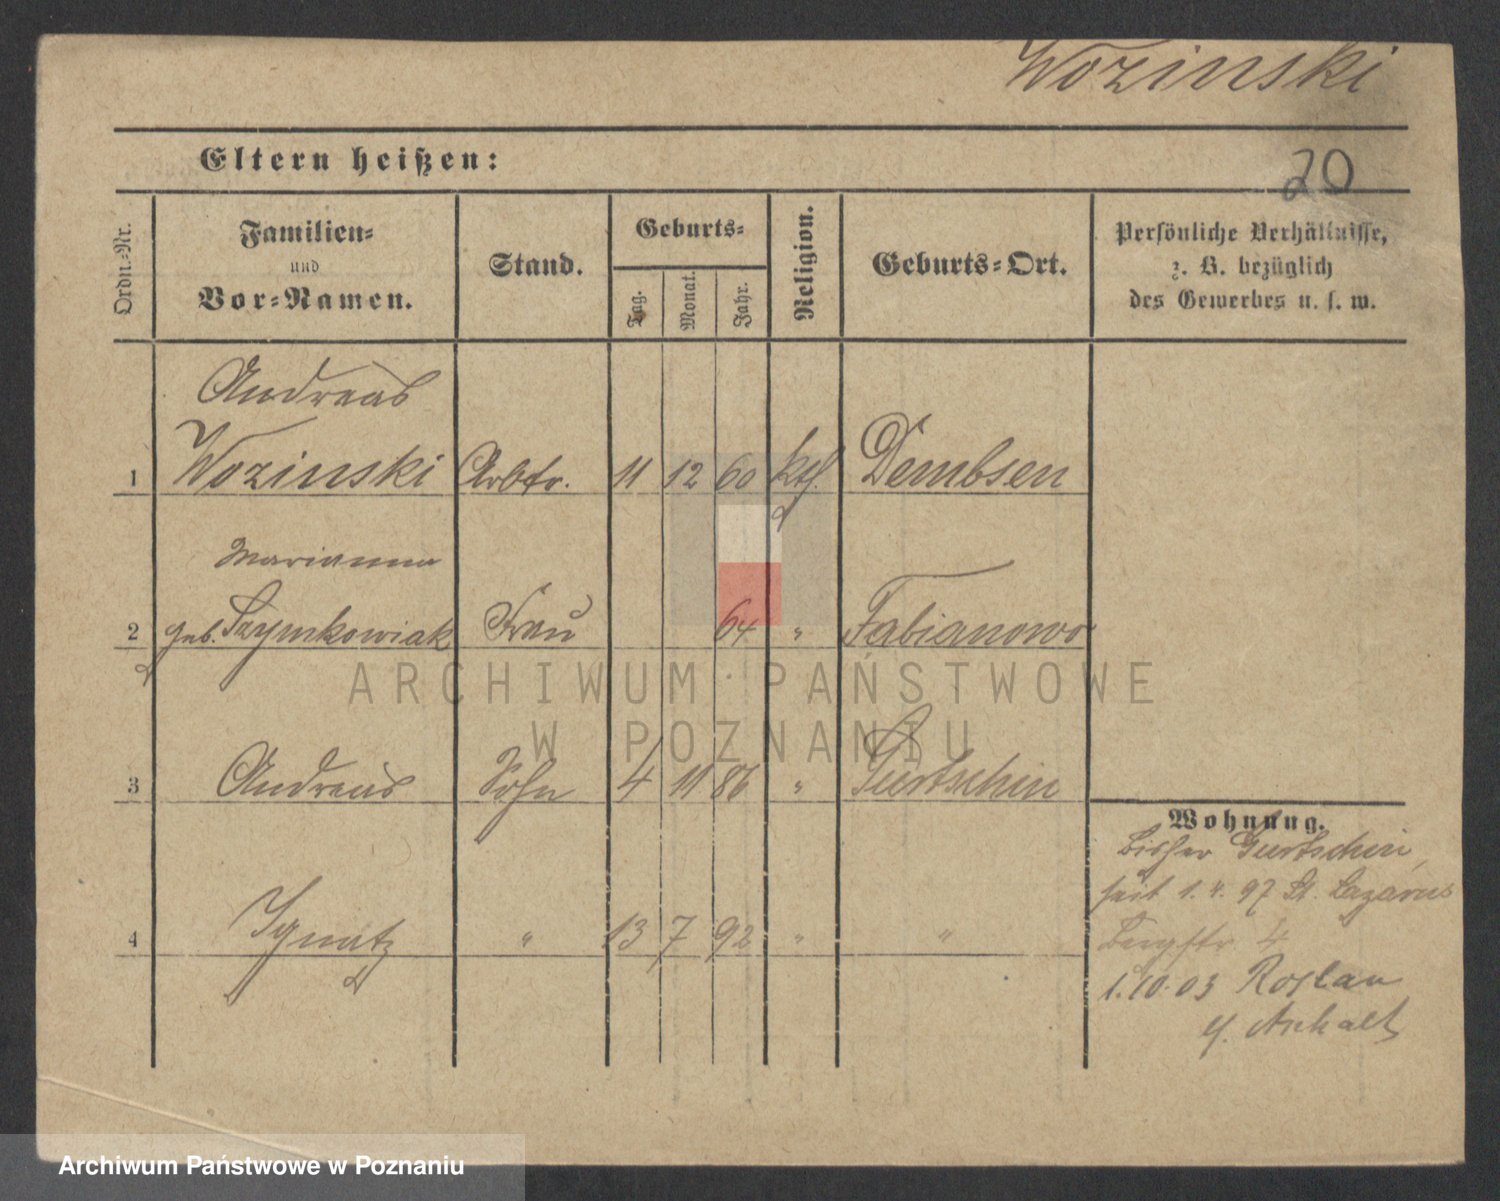 Wozinski
20
Eltern heißen:
Ordn.-Nr.
Familien-
und
Vor-Namen.
Stand.
Geburts-
Tag.
Monat.
Jahr.
Religion.
Geburts-Ort.
Persönliche Verhältnisse,
z. B. bezüglich
des Gewerbes u. s. w.
Andreas
1 Wozinski Arbtr. 11 12 60 ktl. Dembsen
Marianna
2 geb. Szymkowiak Frau 64 " Fabianowo
3 Andreas Sohn 4 11 86 " Gurtschin
4 Ignatz " 13 7 92 " "
Wohnung.
bisher Gurtschin,
seit 1. 4. 97 St. Lazarus
Bergstr. 4
1.10.03 Roßlau
Anhalt
ARCHIWUM PAŃSTWOWE
W POZNANIU
Archiwum Państwowe w Poznaniu